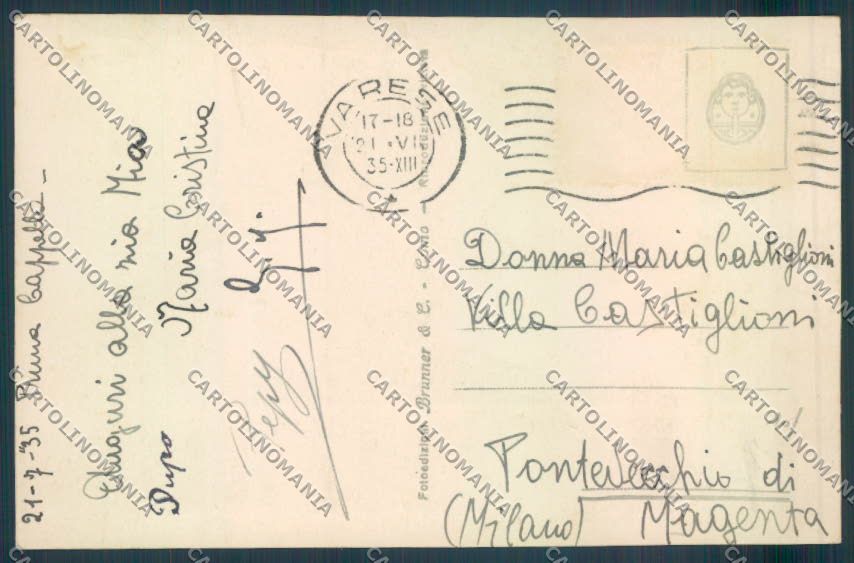 21-7-35 Prima Cappella -
Auguri alla mia Mia
Dupo
Maria Cristina
Pepy
Fotoedizioni Brunner & C. - Como - Riproduzione vietata
VARESE
17-18
21 VII
35-XIII
Donna Maria Castiglioni
Villa Castiglioni
Pontevecchio di
(Milano) Magenta
CARTOLINOMANIA